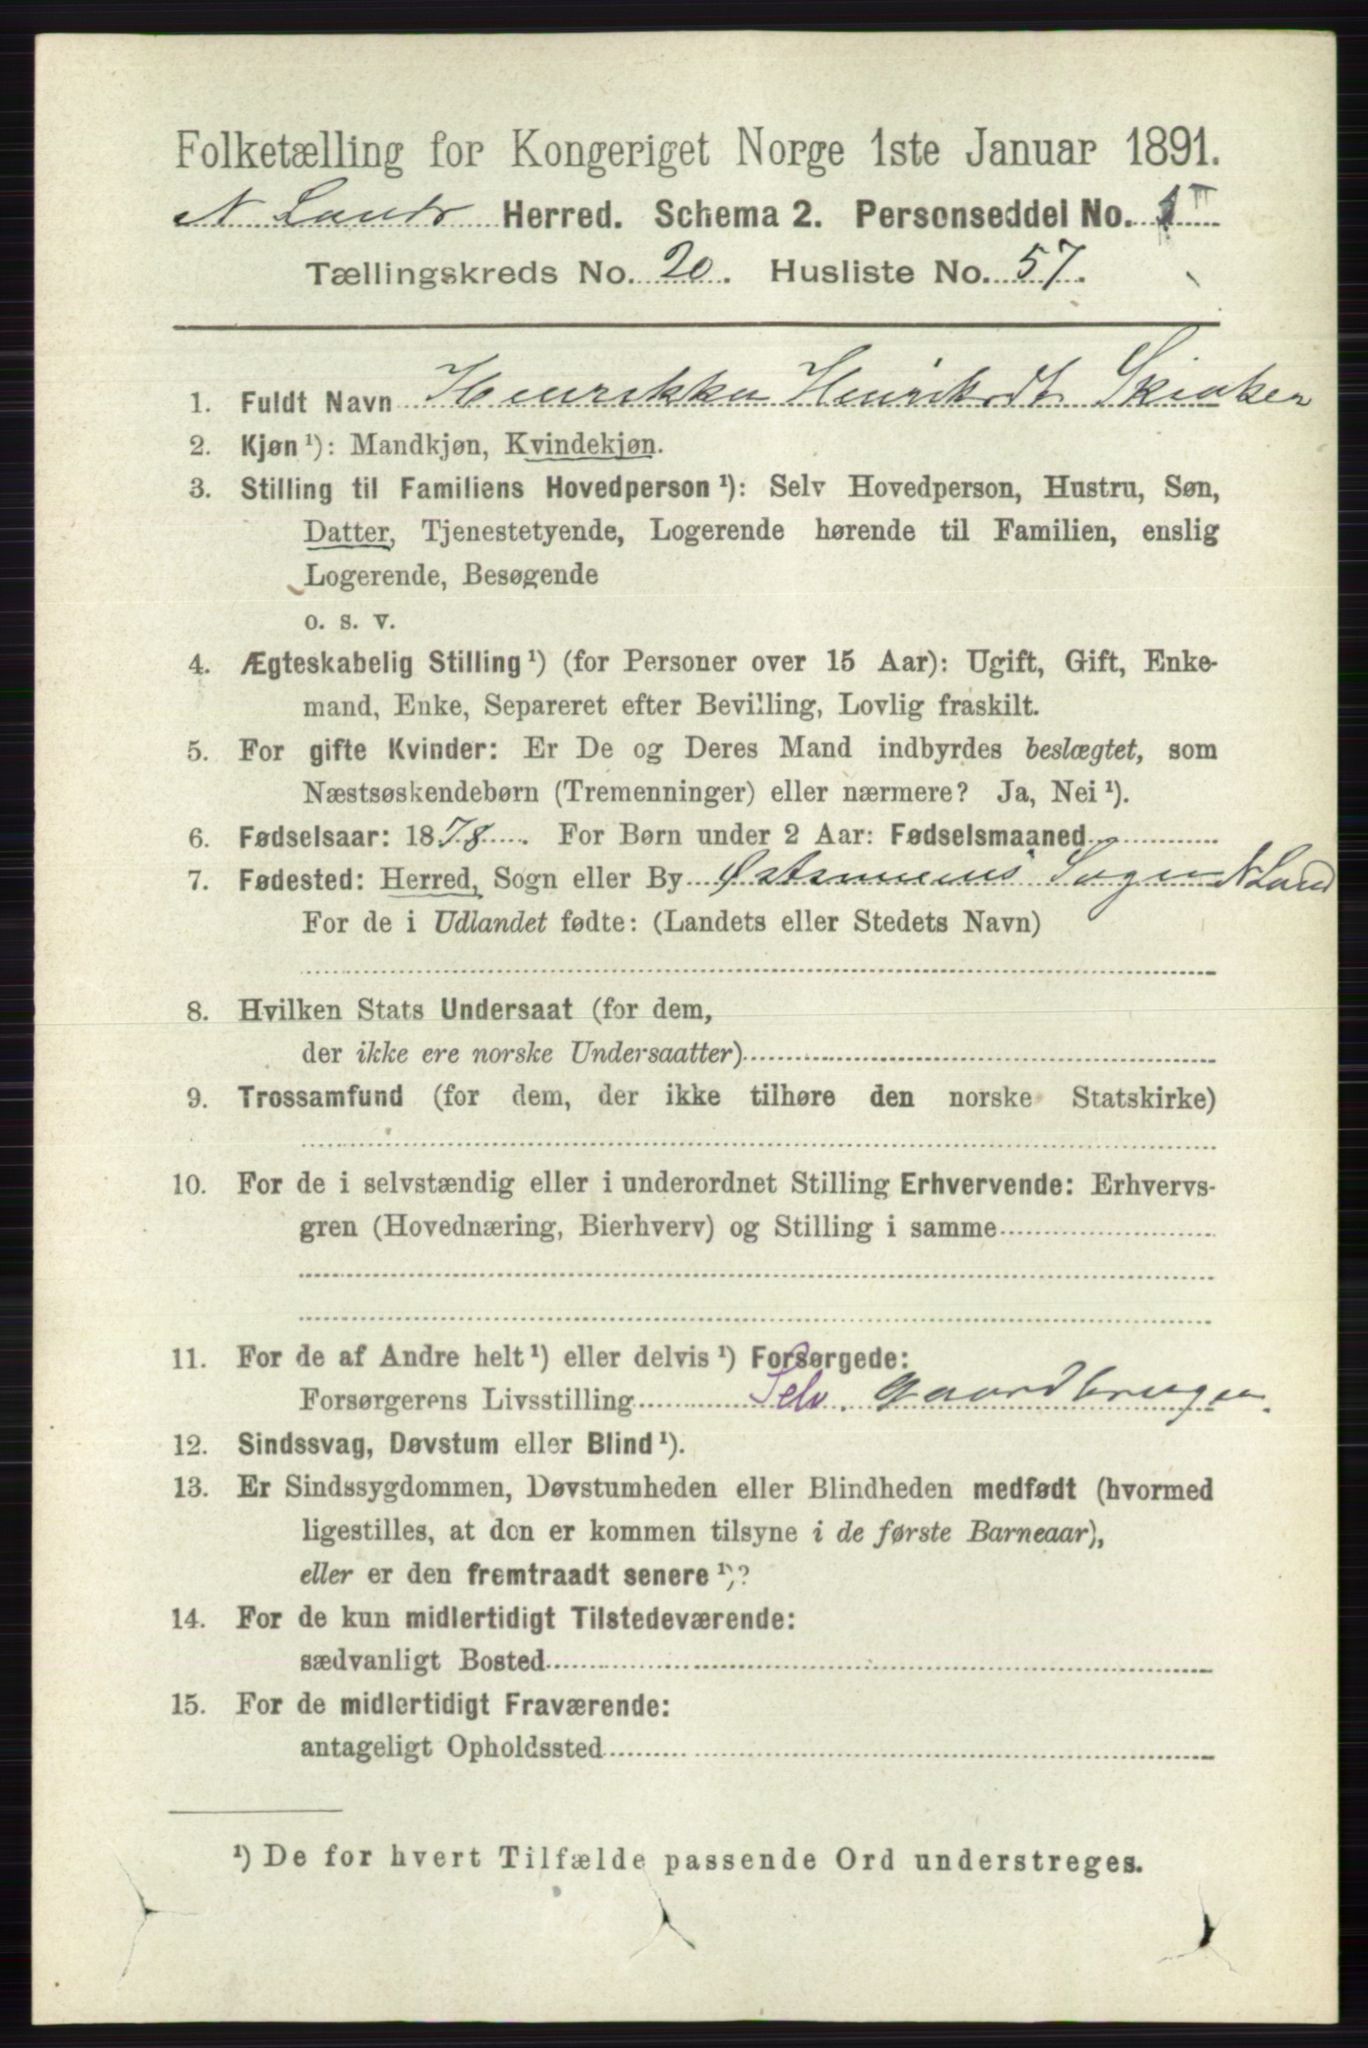 Folketælling for Kongeriget Norge 1ste Januar 1891.
N Lands Herred. Schema 2. Personseddel No.
Tællingskreds No. 20. Husliste No. 57.
1. Fuldt Navn Henrikka Henriksdt
2. Kjøn ¹): Mandkjøn, Kvindekjøn.
3. Stilling til Familiens Hovedperson ¹): Selv Hovedperson, Hustru, Søn,
Datter, Tjenestetyende, Logerende hørende til Familien, enslig
Logerende, Besøgende
o. s. v.
4. Ægteskabelig Stilling ¹) (for Personer over 15 Aar): Ugift, Gift, Enke-
mand, Enke, Separeret efter Bevilling, Lovlig fraskilt.
5. For gifte Kvinder: Er De og Deres Mand indbyrdes beslægtet, som
Næstsøskendebørn (Tremenninger) eller nærmere? Ja, Nei ¹).
6. Fødselsaar: 1878. For Børn under 2 Aar: Fødselsmaaned
7. Fødested: Herred, Sogn eller By Østsinnens Sogn N Land
For de i Udlandet fødte: (Landets eller Stedets Navn)
8. Hvilken Stats Undersaat (for dem,
der ikke ere norske Undersaatter)
9. Trossamfund (for dem, der ikke tilhøre den norske Statskirke)
10. For de i selvstændig eller i underordnet Stilling Erhvervende: Erhvervs-
gren (Hovednæring, Bierhverv) og Stilling i samme
11. For de af Andre helt ¹) eller delvis ¹) Forsørgede:
Forsørgerens Livsstilling Selv. Gaardbruger.
12. Sindssvag, Døvstum eller Blind ¹).
13. Er Sindssygdommen, Døvstumheden eller Blindheden medfødt (hvormed
ligestilles, at den er kommen tilsyne i de første Barneaar),
eller er den fremtraadt senere ¹)?
14. For de kun midlertidigt Tilstedeværende:
sædvanligt Bosted
15. For de midlertidigt Fraværende:
antageligt Opholdssted
¹) De for hvert Tilfælde passende Ord understreges.